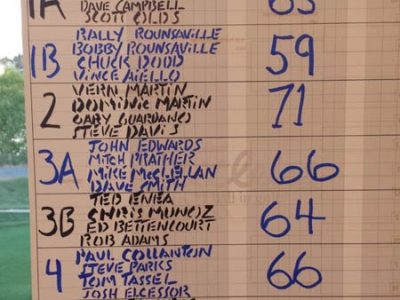 1A
DAVE CAMPBELL
SCOTT OLDS
63
1B
RALLY ROUNSAVILLE
BOBBY ROUNSAVILLE
CHUCK DODD
VINCE AIELLO
59
2
VERN MARTIN
DOMINIC MARTIN
GARY GUARDANO
STEVE DAVIS
71
3A
JOHN EDWARDS
MITCH PRATHER
MIKE McCLELLAN
DAVE SMITH
66
3B
TED ENEA
CHRIS MUNOZ
ED BETTENCOURT
ROB ADAMS
64
4
PAUL COLLANTON
STEVE PARKS
TOM TASSEL
JOSH ELCESSOR
66